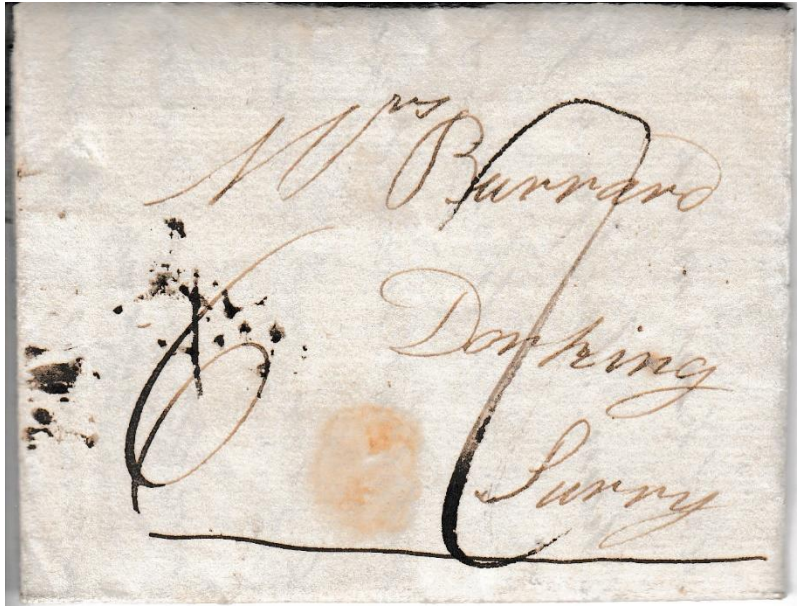 Mrs Burrard
Dorking
Surry